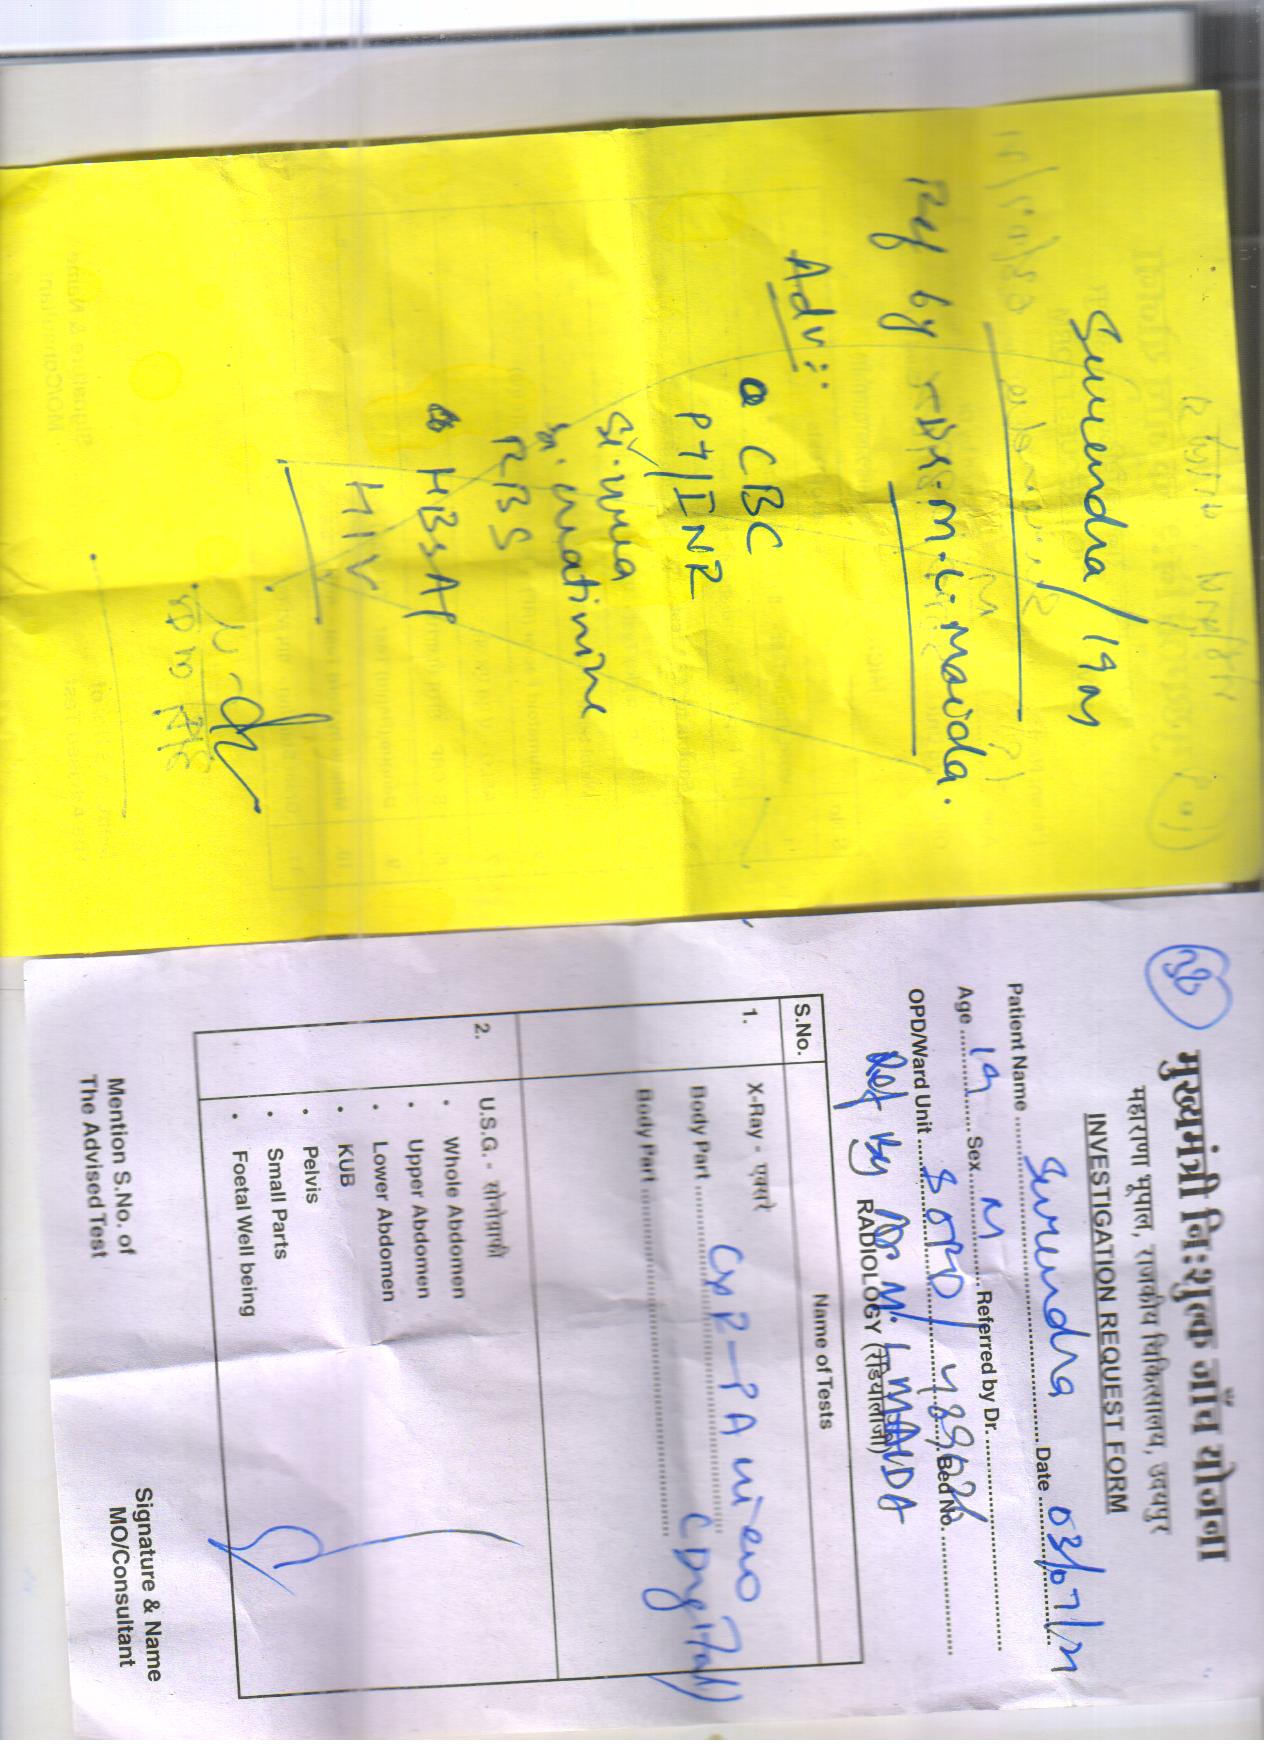 Surendra / 19 M
Ref by Dr. M. L. Mawda.
Adv:
CBC
PT/INR
Sr. urea
Sr. creatinine
RBS
HBsAg
HIV
38
मुख्यमंत्री नि:शुल्क जाँच योजना
महाराणा भूपाल, राजकीय चिकित्सालय, उदयपुर
INVESTIGATION REQUEST FORM
Patient Name Surendra Date 03/07/21
Age 19 Sex M Referred by Dr.
OPD/Ward Unit SOPD Bed No.
Ref By Dr M. L MAWDA
RADIOLOGY (रेडियोलॉजी)
S.No. Name of Tests
1. X-Ray - एक्सरे
Body Part CXR-PA view
Body Part (Digital)
2. U.S.G. - सोनोग्राफी
• Whole Abdomen
• Upper Abdomen
• Lower Abdomen
• KUB
• Pelvis
• Small Parts
• Foetal Well being
Mention S.No. of
The Advised Test
Signature & Name
MO/Consultant